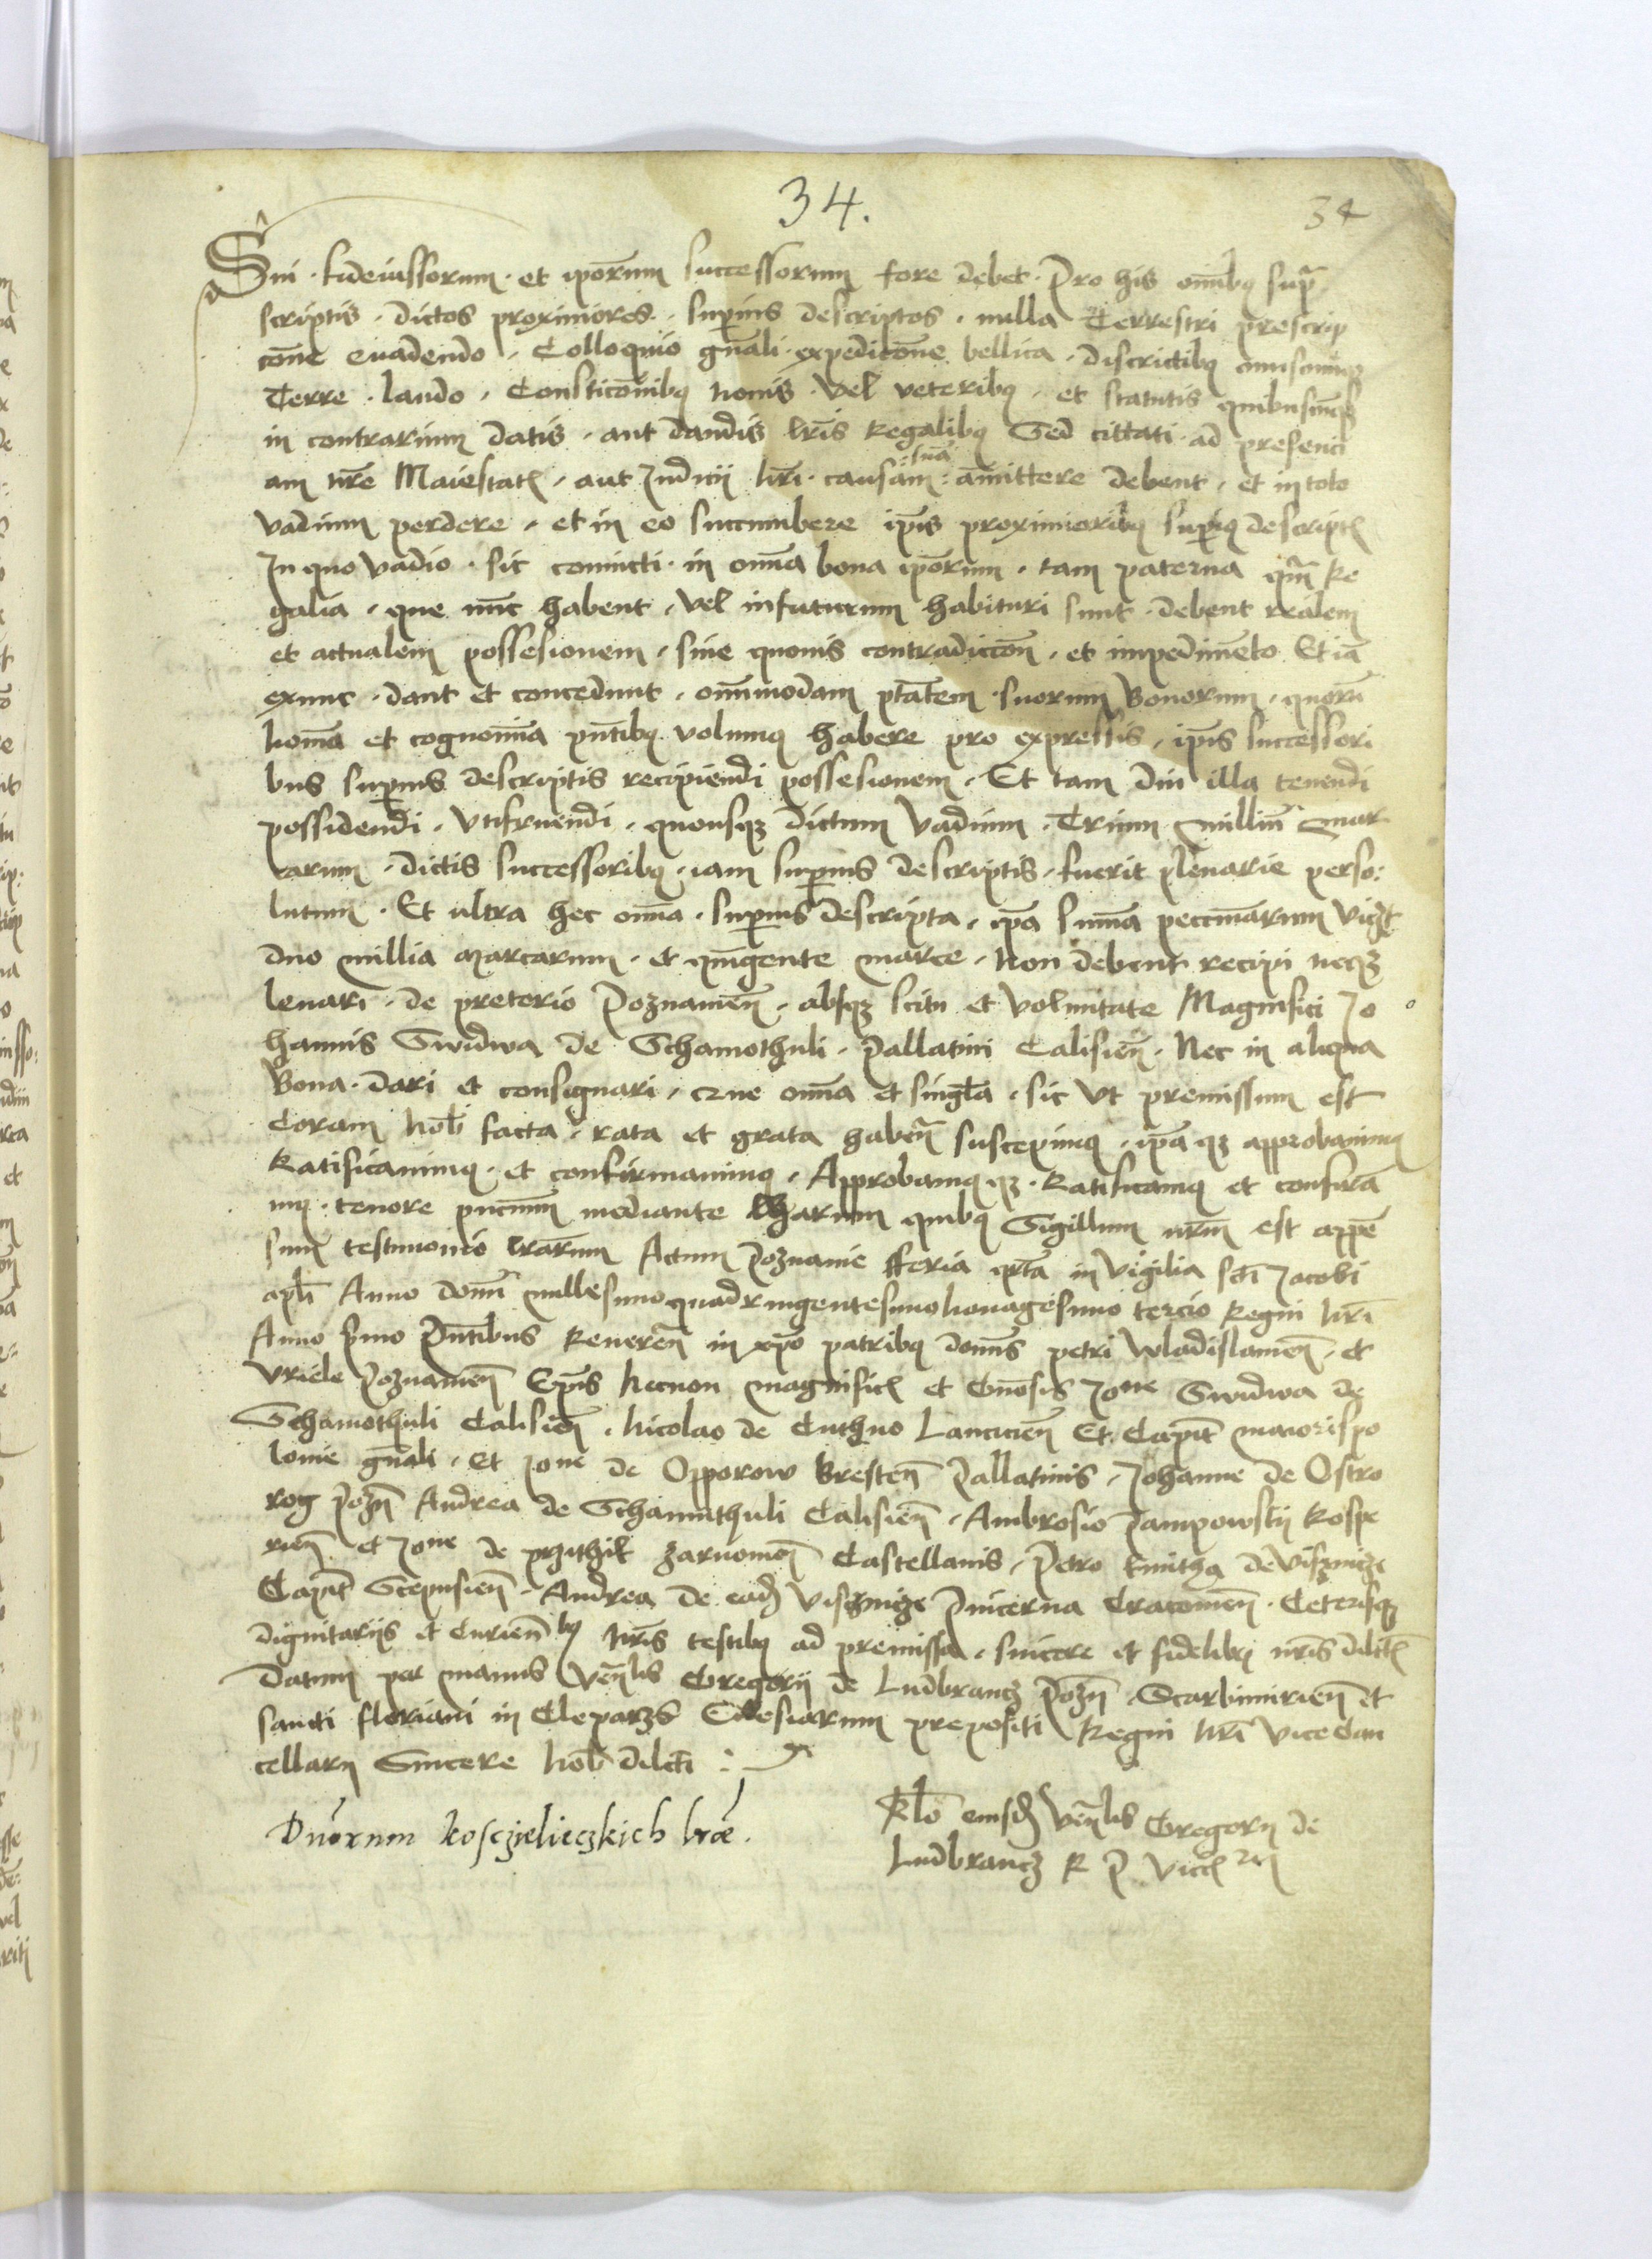 34.
34
Sui · fideiussorum · et ipōrum successorum fore debet · Pro his om̄ibꝫ supra
scriptis · dictos proximiores · superius descriptos · nulla Terrestri prescrip
cōne euadendo · Colloquio gn̄ali · expedicōne bellica · discrictibꝫ
Terre · laudo · Consticōnibꝫ nouis vel veteribꝫ · et statutis quibuscūqꝫ
in contrarium datis · aut dandis lr̄is Regalibꝫ Sed cittati · ad presenci
am nr̄e Maiestatis · aut Judicij nr̄i · causam : suā : amittere debent · et in toto
vadium perdere · et in eo succumbere ip̄is proximioribꝫ superiꝰ descriptis
In quo vadio · sic conuicti · in om̄ia bona ipōrum · tam paterna qm̄ Re
galia · que nūc habent · vel infuturum habituri sunt · debent realem
et actualem possesionem · sine quouis contradiccōn · et impedimēto Etiā
exnunc · dant et concedunt · om̄imodam ptātem · suorum Bonorum · quorū
nom̄ia et cognom̄ia pn̄tibꝫ volumꝰ habere pro expressis · ip̄is successori
bus superius descriptis recipiendi possesionem · Et tam diu illa tenendi
possidendi · vtifruendi · quousqꝫ dictum vadium · Trium milliū mar
carum · dictis successoribꝫ · iam superius descriptis · fuerit plenarie perso:
lutum · Et ultra hec om̄ia · superius descripta · ip̄a sum̄a peccuniārum vicꝫt
duo millia marcarum · et quīgente marce · non debent recipi necqꝫ
leuari · de pretorio Poznamēn · absqꝫ scitu et volūntate Magnifici Jo
hannis Swidwa de Schamothuli · Pallatini Calisiēn · Nec in aliqua
Bona · dari et consignari · que om̄ia et singl̄a · sic vt premissum est
Coram nob̄ facta · rata et grata habēn suscepimꝰ · ip̄a qꝫ approbauimꝰ
Ratificauimꝰ · et confirmauimꝰ · Approbamꝰ qꝫ · Ratificamꝰ et confirma
mꝰ · tenore pn̄cium mediante Harum quibꝫ Sigillum nr̄m est appē
sum testimonio lr̄arum Actum Poznanie fferia qr̄ta in vigilia sct̄i Jacobi
apl̄i Anno domī millesimo quadringentesimo nonagesimo tercio Regni nr̄i
Anno p̄mo Pn̄tibus Reuerēn in xp̄o patribꝫ domīs petri wladislauiēn · et
vriele Poznamēn Ep̄is Necnon magnificis et Gn̄osis Joꝰne Swidwa de
Schamothuli Calisiēn · Nicolao de Cuthno Lanciciēn Et Capīt maiorispo
lonie gn̄ali · et Joꝰne de Opporow Brestēn Pallatinis · Johanne de Ostro
rog Pozn̄ Andrea de Schamuthuli Calisiēn · Ambrosio Pampowskij Rospe
riēn et Joꝰne de przithik zarnouiēn Castellanis · Petro kmitha de visznicze
Capīt Scepusiēn · Andrea de eadem visznicze Pincerna Cracouiēn · Ceterisqꝫ
dignitarijs et Curiēnbꝫ nr̄is testibꝫ ad premissa · sincere et fidelibꝫ nr̄is dilectis
Datum per manus Ven̄lis Gregorij de Ludbrancz Pozn̄ Scarbimiriēn et
sancti floriani in Cleparzs Ecclesiarum prepositi Regni nr̄i vice Can
cellarij Sincere nob̄ dilct̄i :
Duorum kosczieleczkich lr̄e .
Rl̄o eiusdem Ven̄lis Gregorij de
Ludbrancz R P vicecl̄